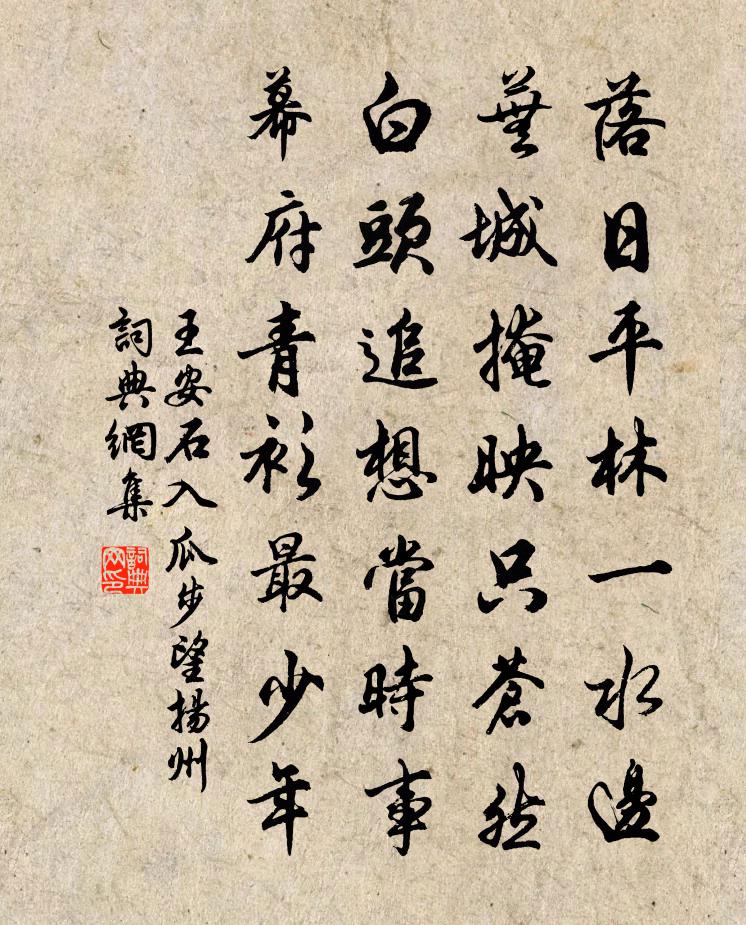 落日平林一水邊
蕪城掩映只蒼然
白頭追想當時事
幕府青衫最少年
王安石入瓜步望揚州
詞典網集
詞典网印